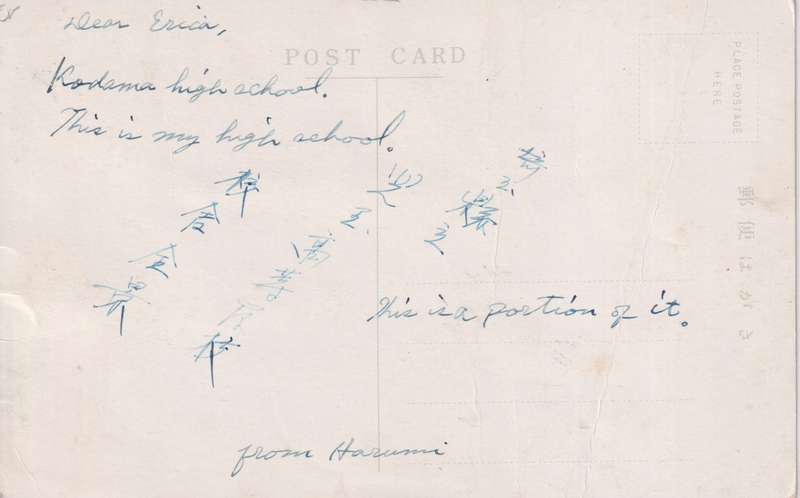 Dear Erica,
POST CARD
PLACE POSTAGE
HERE
Kodama high school.
This is my high school.
埼玉縣立
児玉高等学校
校舎全景
This is a portion of it.
郵便はがき
from Harumi